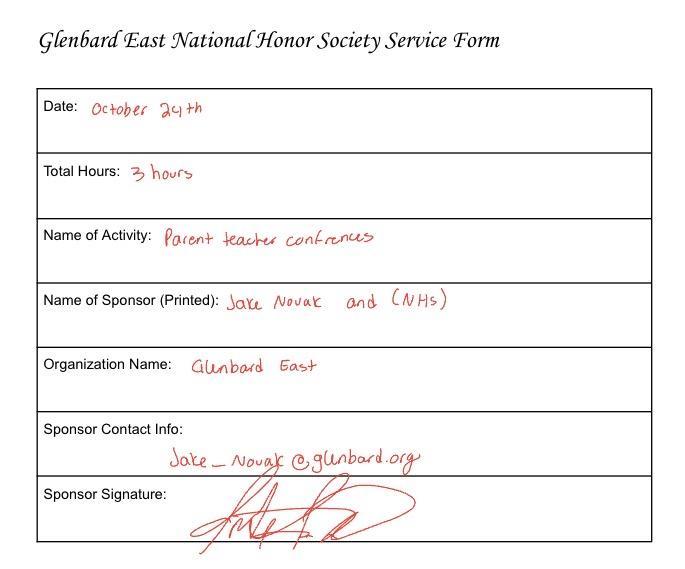 Glenbard East National Honor Society Service Form
Date: October 24th
Total Hours: 3 hours
Name of Activity: Parent teacher confrences
Name of Sponsor (Printed): Jake Novak and (NHS)
Organization Name: Glenbard East
Sponsor Contact Info:
Jake_Novak@glenbard.org
Sponsor Signature: